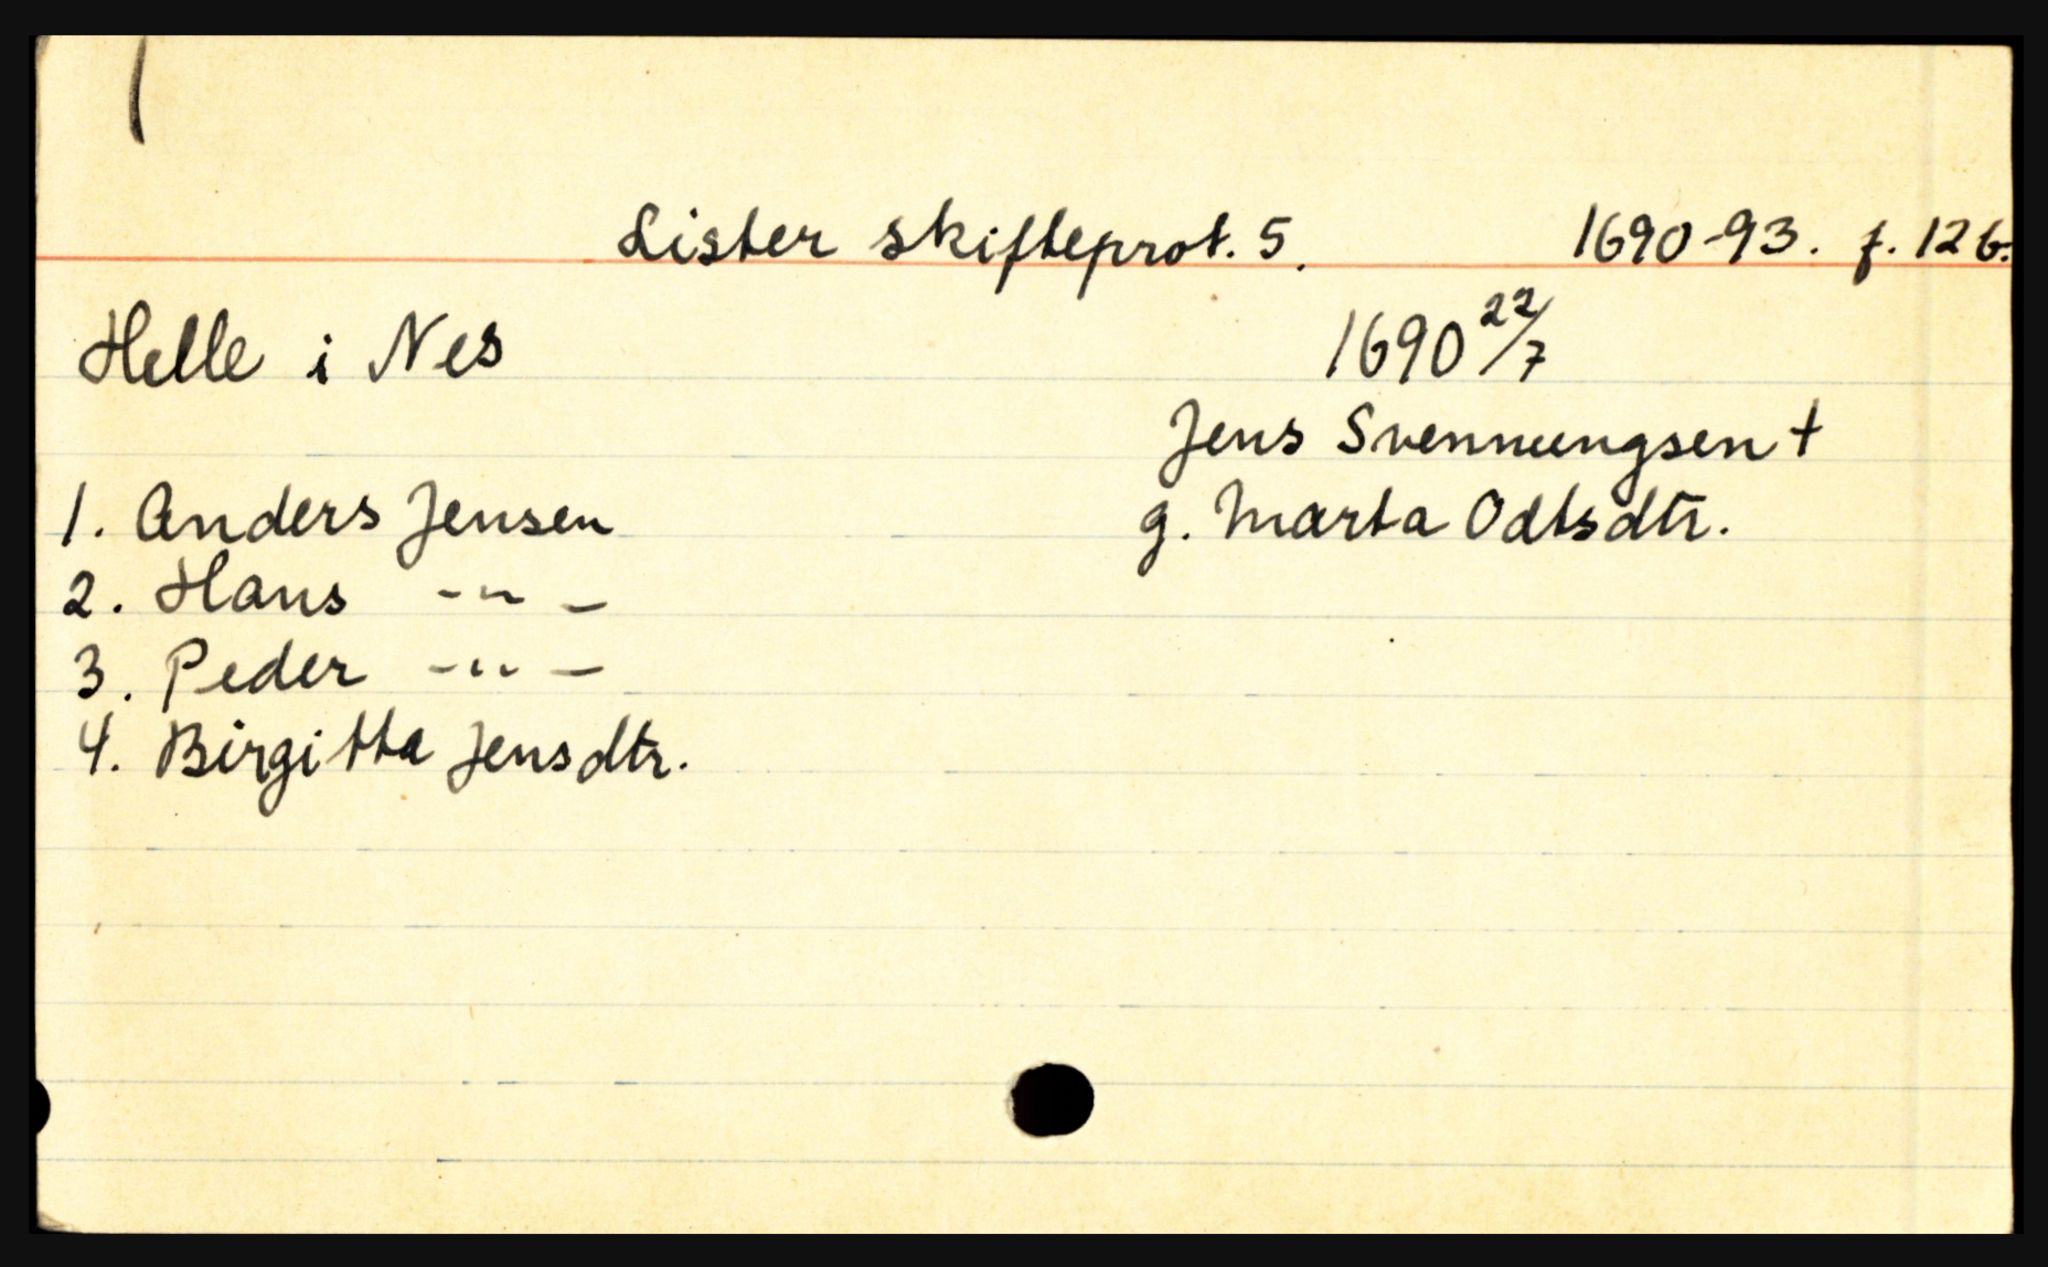 Lister skifteprot. 5. 1690-93. f. 12 b.
Helle i Nes 1690 22/7
Jens Svennungsen †
1. Anders Jensen g. Marta Odtsdtr.
2. Hans -"-
3. Peder -"-
4. Birgitta Jensdtr.